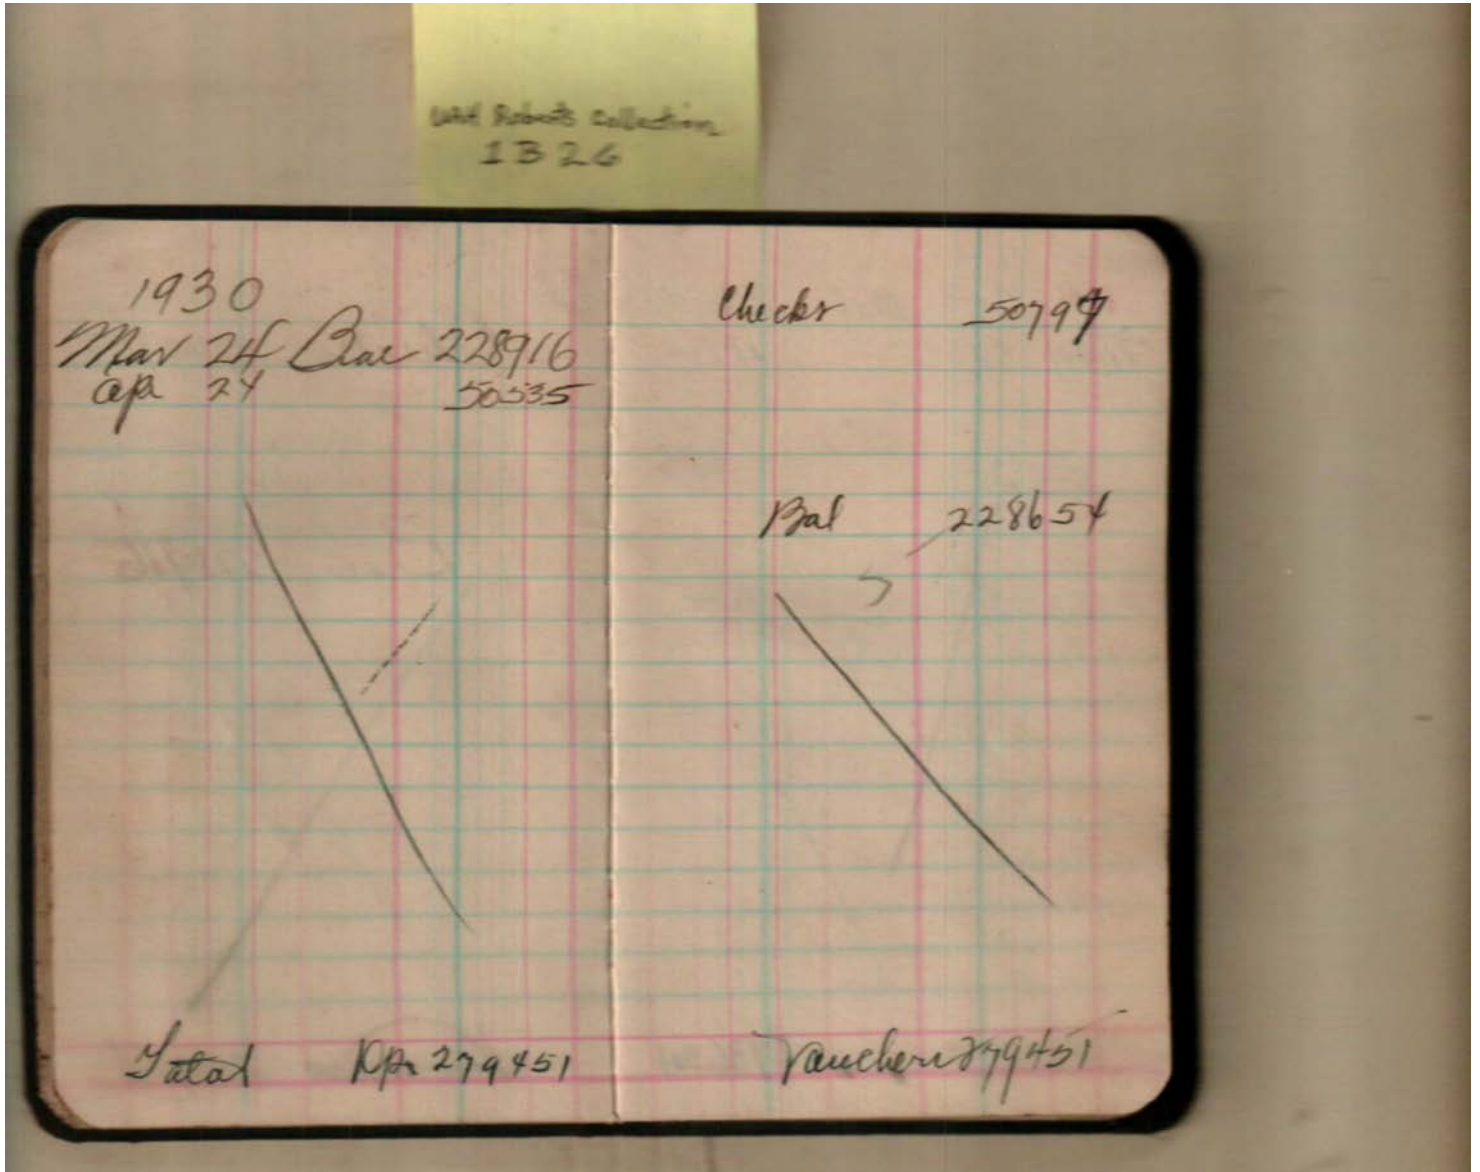 UAH Roberts Collection
1B26
1930
Mar 24 Bal 228916
Apr 24 50535
Total 279451
Checks 50797
Bal 228654
Vouchers 279451